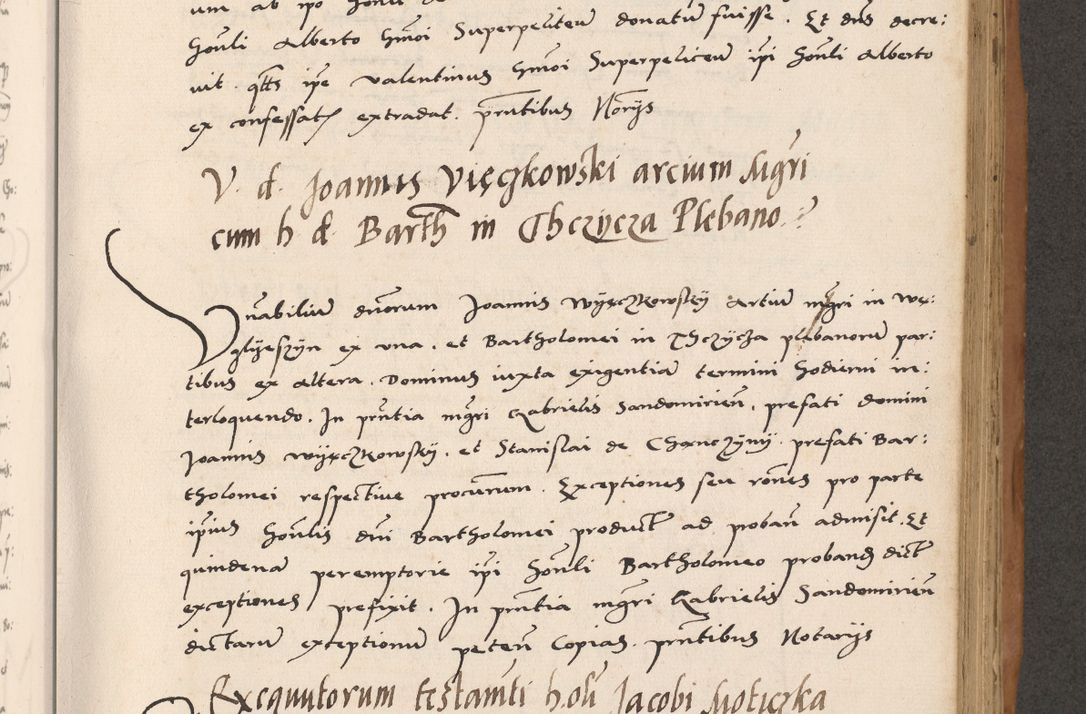 um ab ipo
honli Alberto hmoi Superpeliceu donatu fuisse. Et dns decre:
vit. qtts ipe Valentinus hmoi Superpeliceu ipi honli Alberto
ex confessatis extradat. prntibus Norijs
V. d. Joannis Vięczkowski arcium Mgri
cum h d. Barth in Thczycza Plebano
Vnabiliu dnorum Joannis Wyęczkowsky Artiu mgri in Wę:
glyeszyn ex una. et Bartholomei in Thczycza plebanoru par:
tibus ex altera. Dominus iuxta exigentia termini hodierni in:
terloquendo. In prntia mgri Gabrielis Sandomirien, prefati domini
Joannis Wyęczkowsky. et Stanislai de Chęnczyny prefati Bar:
tholomei respective procurum. Exceptiones seu rones pro parte
ipius honlis dni Bartholomei product ad proban admisit. Et
quindena peremptorie ipi honli Bartholomeo proband dict
exceptiones prefixit. In prntia mgri Gabrielis Sandomirien
dictaru exceptionu peten Copias. prntibus Notarijs
Exequutorum testamti h. oli Jacobi Moticzka